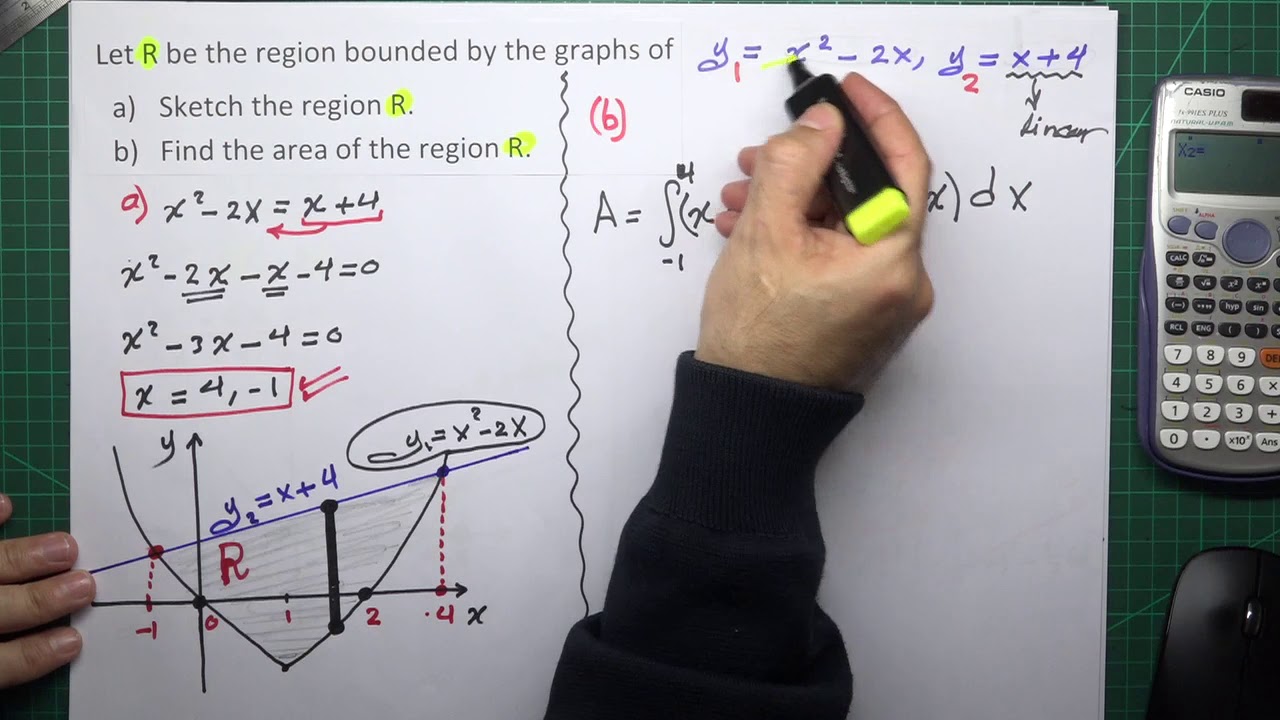 Let R be the region bounded by the graphs of y₁ = x² - 2x, y₂ = x + 4
Linear
a) Sketch the region R.
b) Find the area of the region R.
a) x² - 2x = x + 4
x² - 2x - x - 4 = 0
x² - 3x - 4 = 0
x = 4, -1
y
y₁ = x² - 2x
y₂ = x + 4
R
-1 0 1 2 4 x
(b)
A = ∫ 4 -1 (x x) dx
CASIO
NATURAL-V.P.A.M.
X2=
SHIFT ALPHA
CALC
hyp sin
RCL ENG ( )
7 8 9 DE
4 5 6 ×
1 2 3 +
0 · ×10ˣ Ans
2